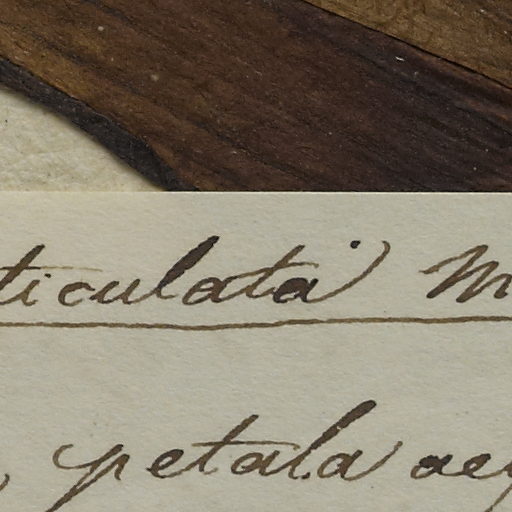 ticulata M
petala aeq